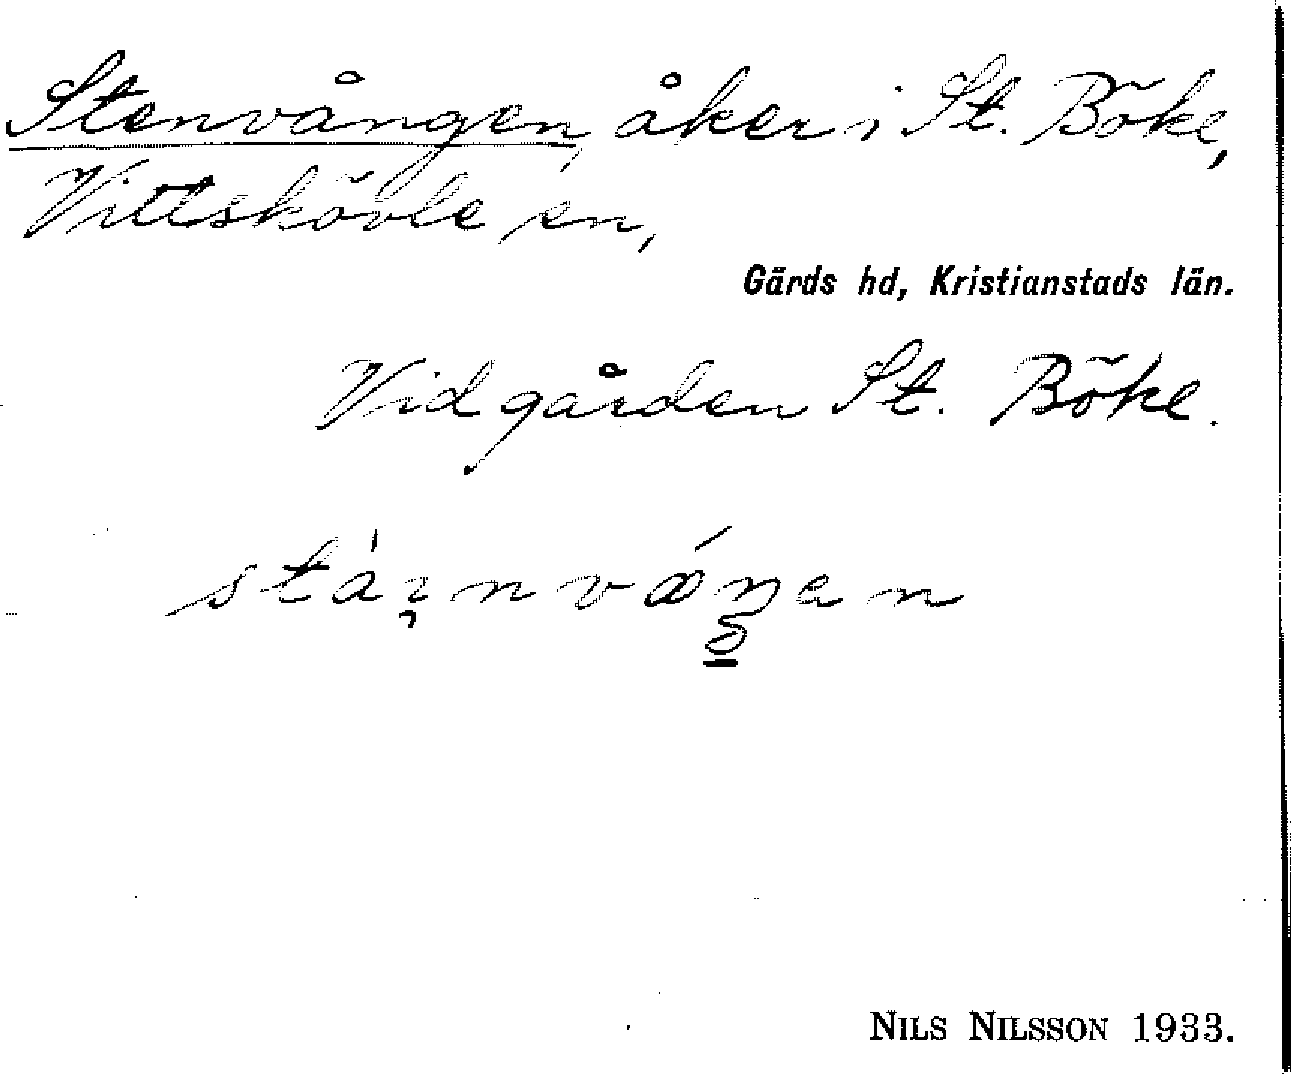 Stenvången, åker i St. Böke,
Vittskövle sn,
Gärds hd, Kristianstads län.
Vid gården St. Böke.
NILS NILSSON 1933.